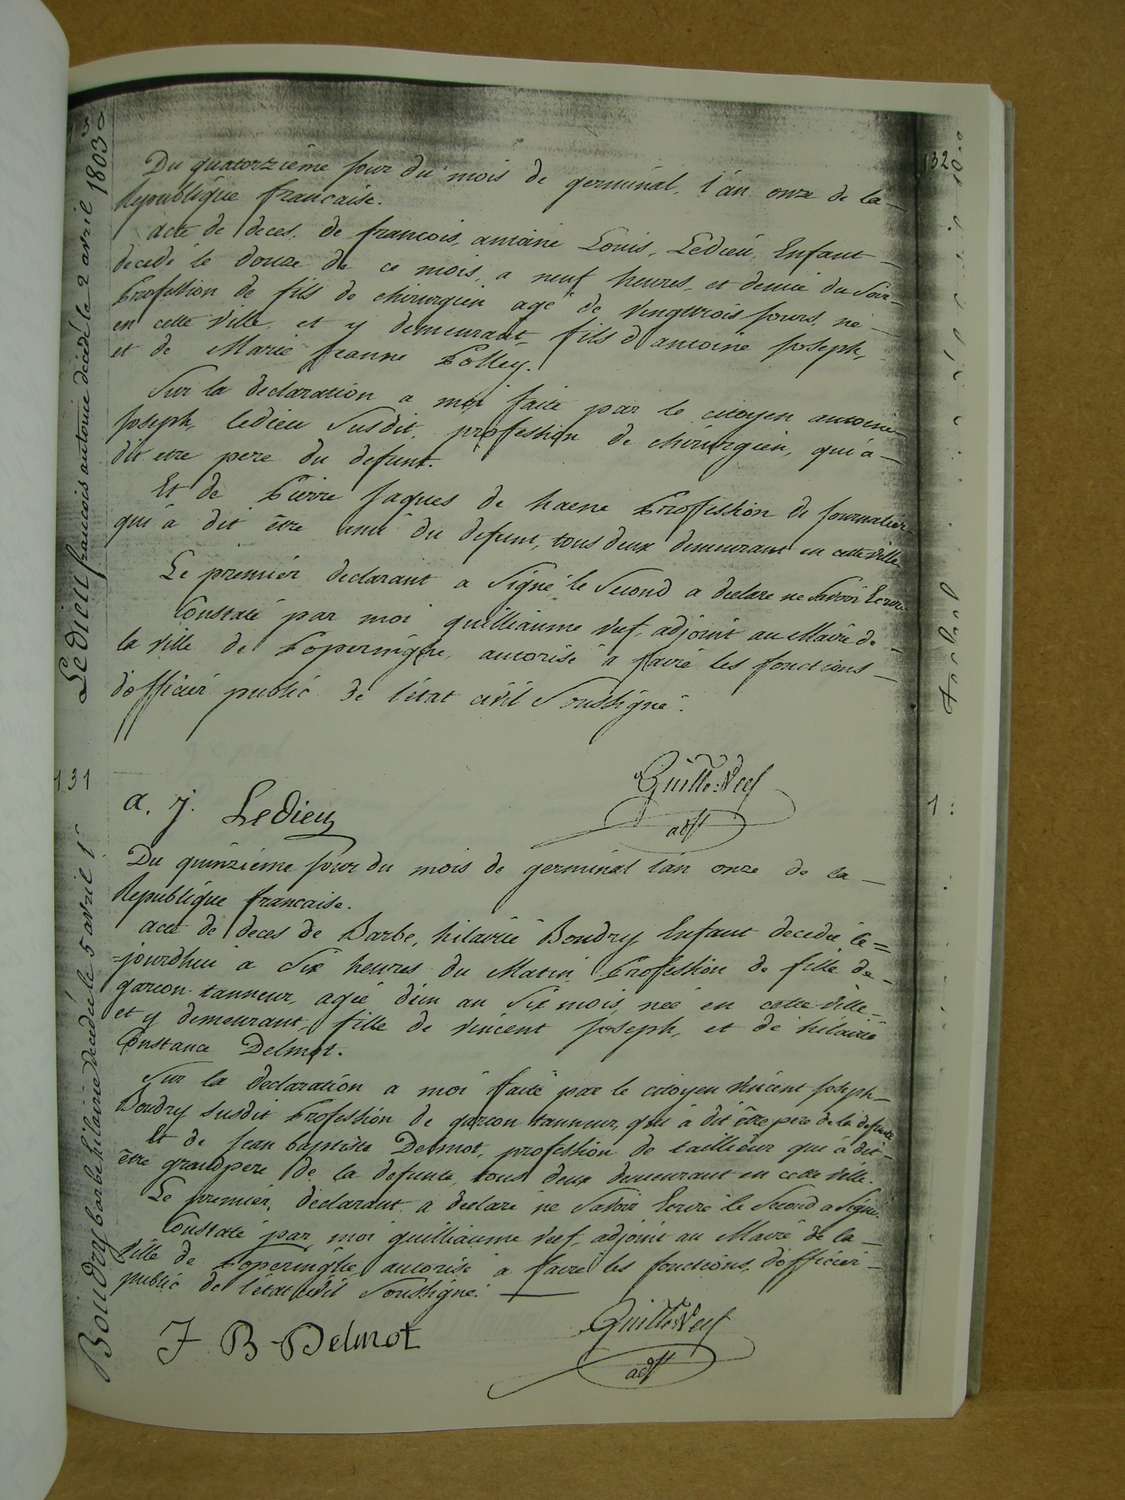 Du quatorzième jour du mois de germinal, l'an onze de la
Republique francaise.
acte de deces, de francois, antoine Louis, Ledieu, Enfant
decedé le douze de ce mois, a neuf heures, et demie du Soir
Profession de fils de chirurgien agé de vingttrois jours, né
en cette ville, et y demeurant, fils d'antoine Joseph,
et de Marie Jeanne Polley.
Sur la declaration a moi faite par le citoyen antoine
Joseph, ledieu Susdit, profession de chirurgien, qui à
dit etre pere du defunt.
Et de Pierre Jaques de haene Profession de journalier
qui à dit être ami du defunt, tous deux demeurant en cette ville
Le premier declarant a Signé, le Second a declare ne Savoir Ecrire
Constaté par moi guilliaume Vef, adjoint au Maire de
la ville de Poperinghe, autorisé a faire les fonctions
d'officier public de l'état civil Soussigné.
131
a. j. Ledieu
Guille. Veef
adjt
Du quinzieme jour du mois de germinal l'an onze de la
Republique francaise.
acte de deces de Barbe, hilairie Boudry Enfant decedée, le=
jourdhui a Six heures du Matin Profession de fille de
garcon tanneur, agée d'un an Six mois, née en cette ville
et y demeurant, fille de vincent Joseph, et de hilairie
Constance Delmot.
Sur la declaration a moi faite par le citoyen vincent Joseph
Boudry Susdit Profession de garcon tanneur, qui à dit être pere de la defunte
Et de Jean baptiste Delmot, profession de taillieur qui à dit
être grandpere de la defunte, tous deux demeurant en cette ville.
Le premier, declarant a declaré ne Savoir Ecrire le Second a Signé
Constaté par moi guilliaume Vef adjoint au Maire de la
ville de Poperinghe autorisé a faire les fonctions, d'officier
public de l'état civil Soussigné.
J B Delmot
Guille. Veef
adjt
Ledieu francois antoine décédé le 2 avril 1803
Boudry barbe hilaire décédée le 5 avril
132
1